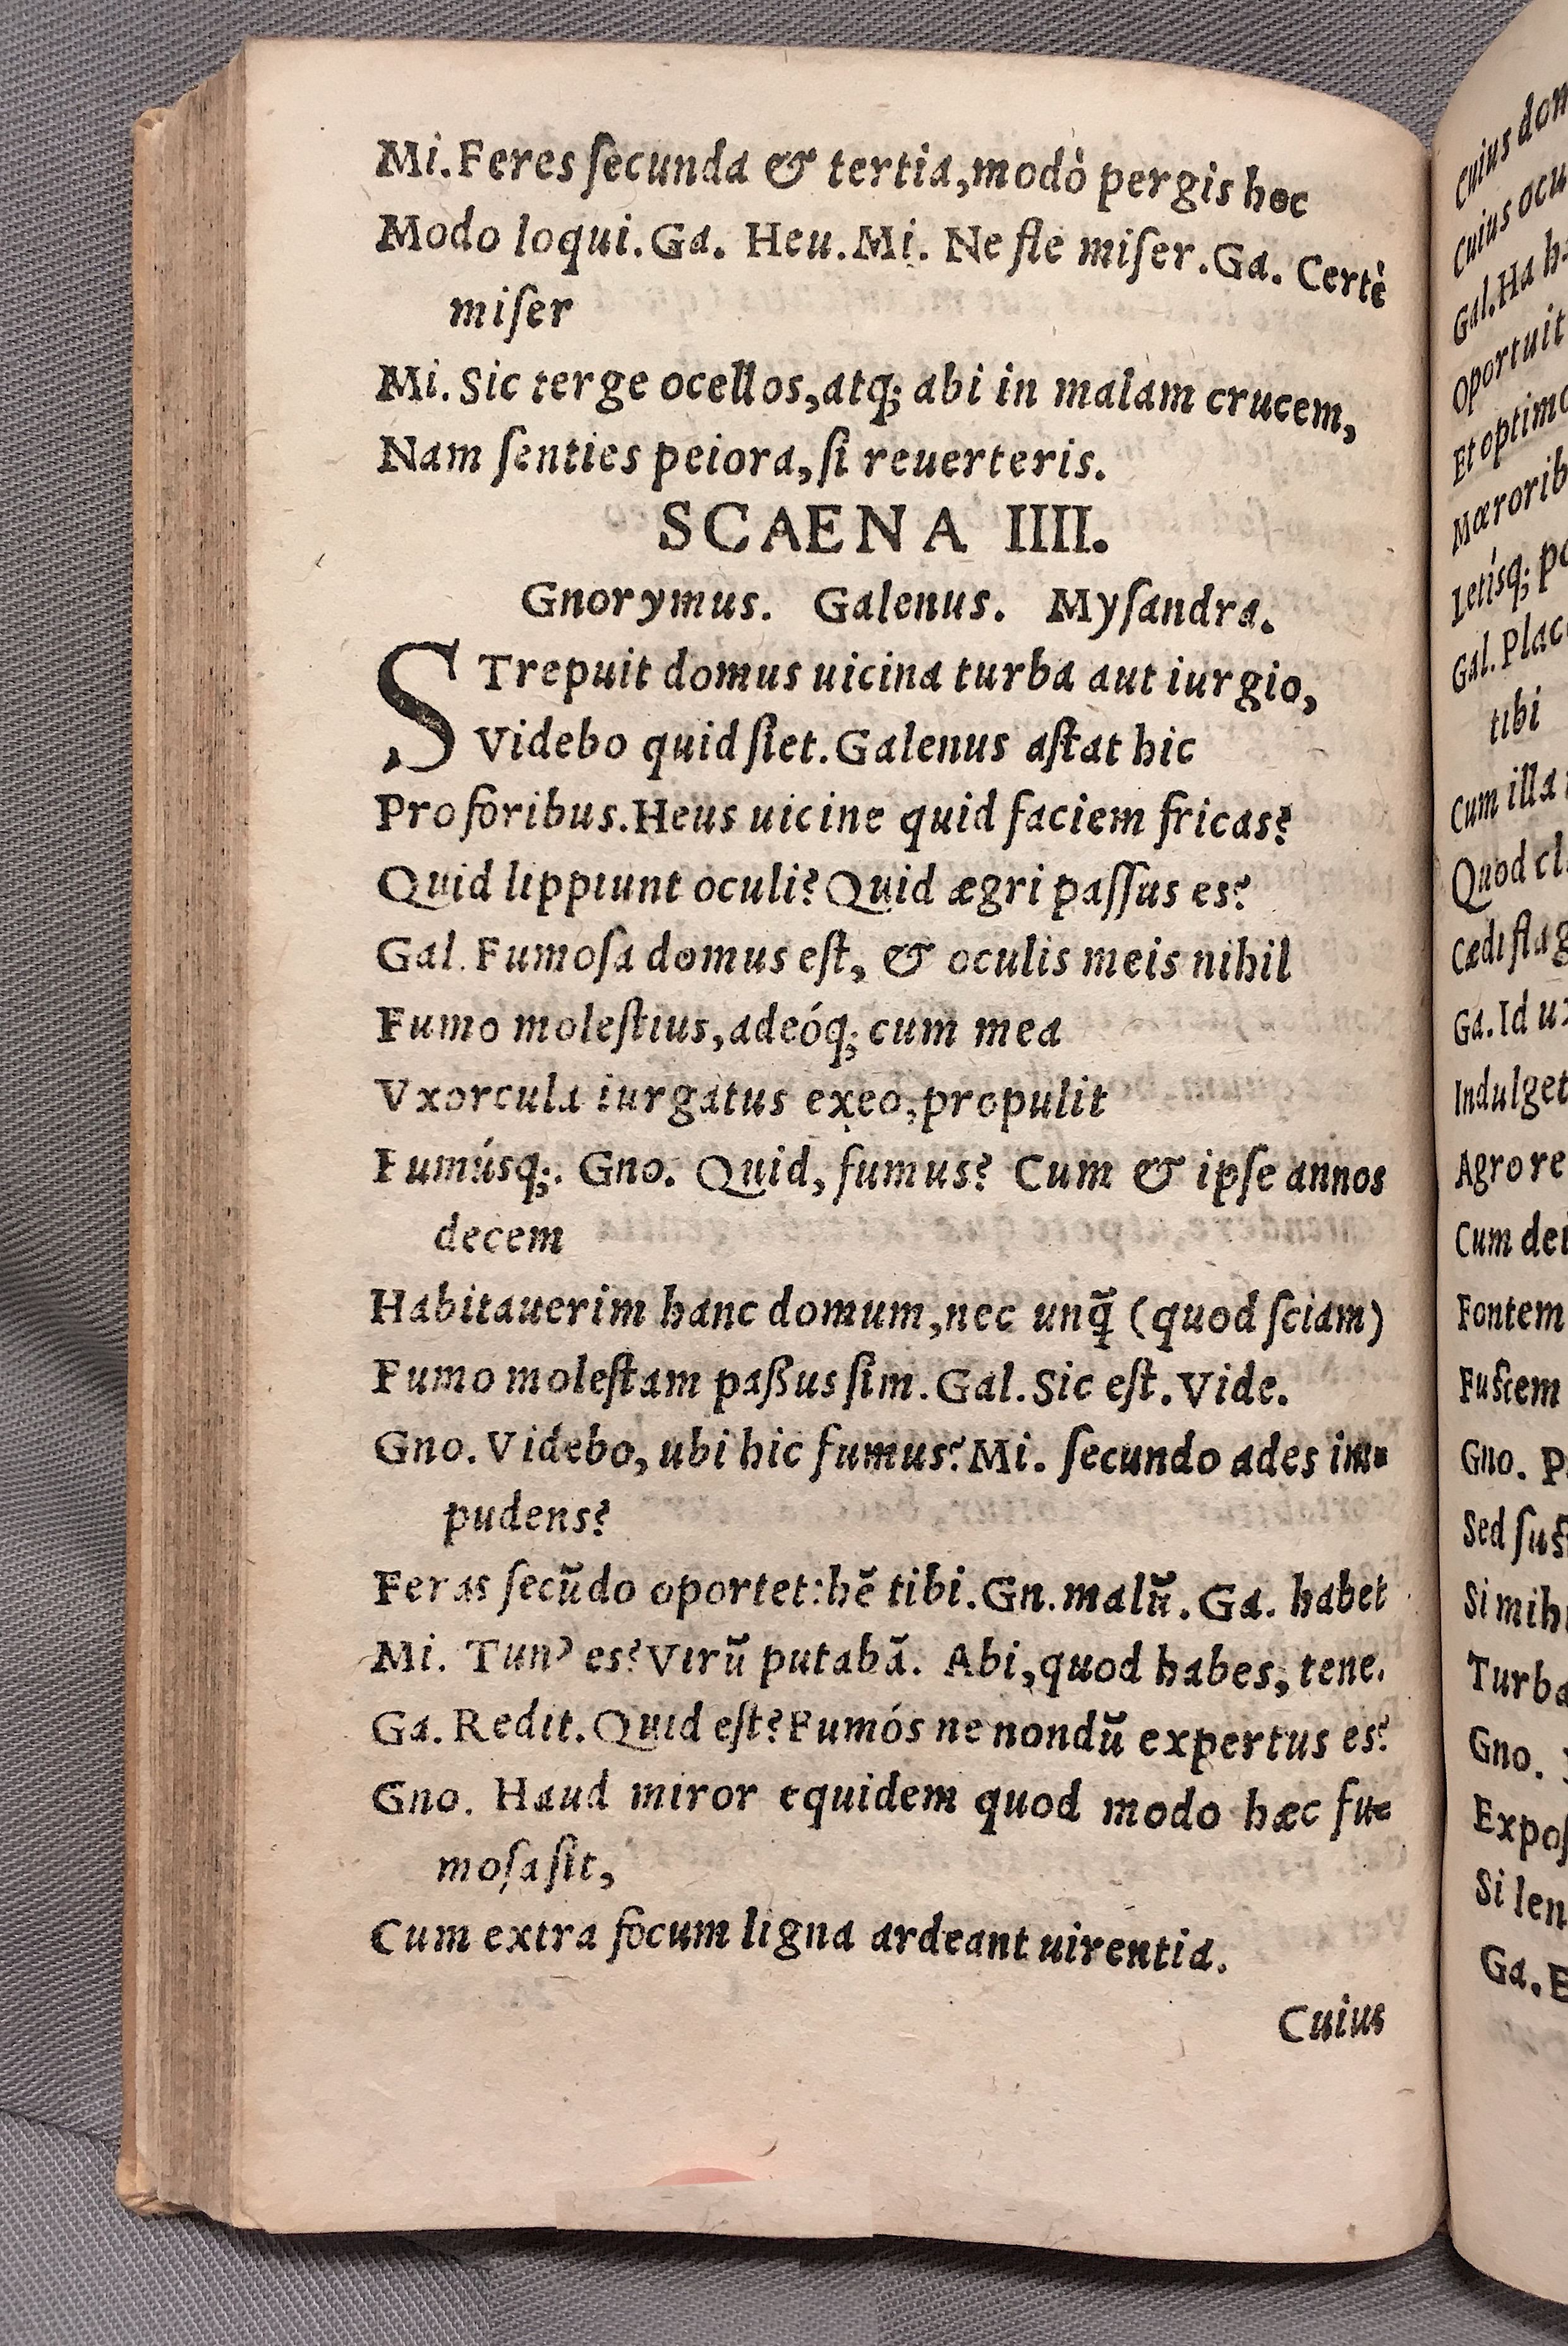 Mi. Feres ſecunda & tertia, modò pergis hoc
Modo loqui. Ga. Heu. Mi. Ne fle miſer. Ga. Certè
miſer
Mi. Sic terge ocellos, atq; abi in malam crucem,
Nam ſenties peiora, ſi reuerteris.
SCAENA IIII.
Gnorymus. Galenus. Myſandra.
STrepuit domus uicina turba aut iurgio,
Videbo quid ſiet. Galenus aſtat hic
Pro foribus. Heus uicine quid faciem fricas?
Quid lippiunt oculi? Quid ægri paſſus es?
Gal. Fumoſa domus eſt, & oculis meis nihil
Fumo moleſtius, adeóq; cum mea
Vxorcula iurgatus exeo, propulit
Fumúsq;. Gno. Quid, fumus? Cum & ipſe annos
decem
Habitauerim hanc domum, nec unq̃ (quod ſciam)
Fumo moleſtam paßus ſim. Gal. Sic eſt. Vide.
Gno. Videbo, ubi hic fumus? Mi. ſecundo ades im-
pudens?
Feras ſecũdo oportet: hẽ tibi. Gn. malũ. Ga. habet
Mi. Tun' es? Virũ putabã. Abi, quod habes, tene.
Ga. Redit. Quid eſt? Fumós ne nondũ expertus es?
Gno. Haud miror equidem quod modo hæc fu-
moſa ſit,
Cum extra focum ligna ardeant uirentia.
Cuius
Cuius
Cuius
Gal. Ha
Oportuit
Et
Letísq;
Gal.
tibi
Cum illa
Quod
Cædi
Ga. Id
Indulget
Agro
Cum
Fontem
Fuſtem
Gno.
Sed
Si
Gno.
Si
Ga.